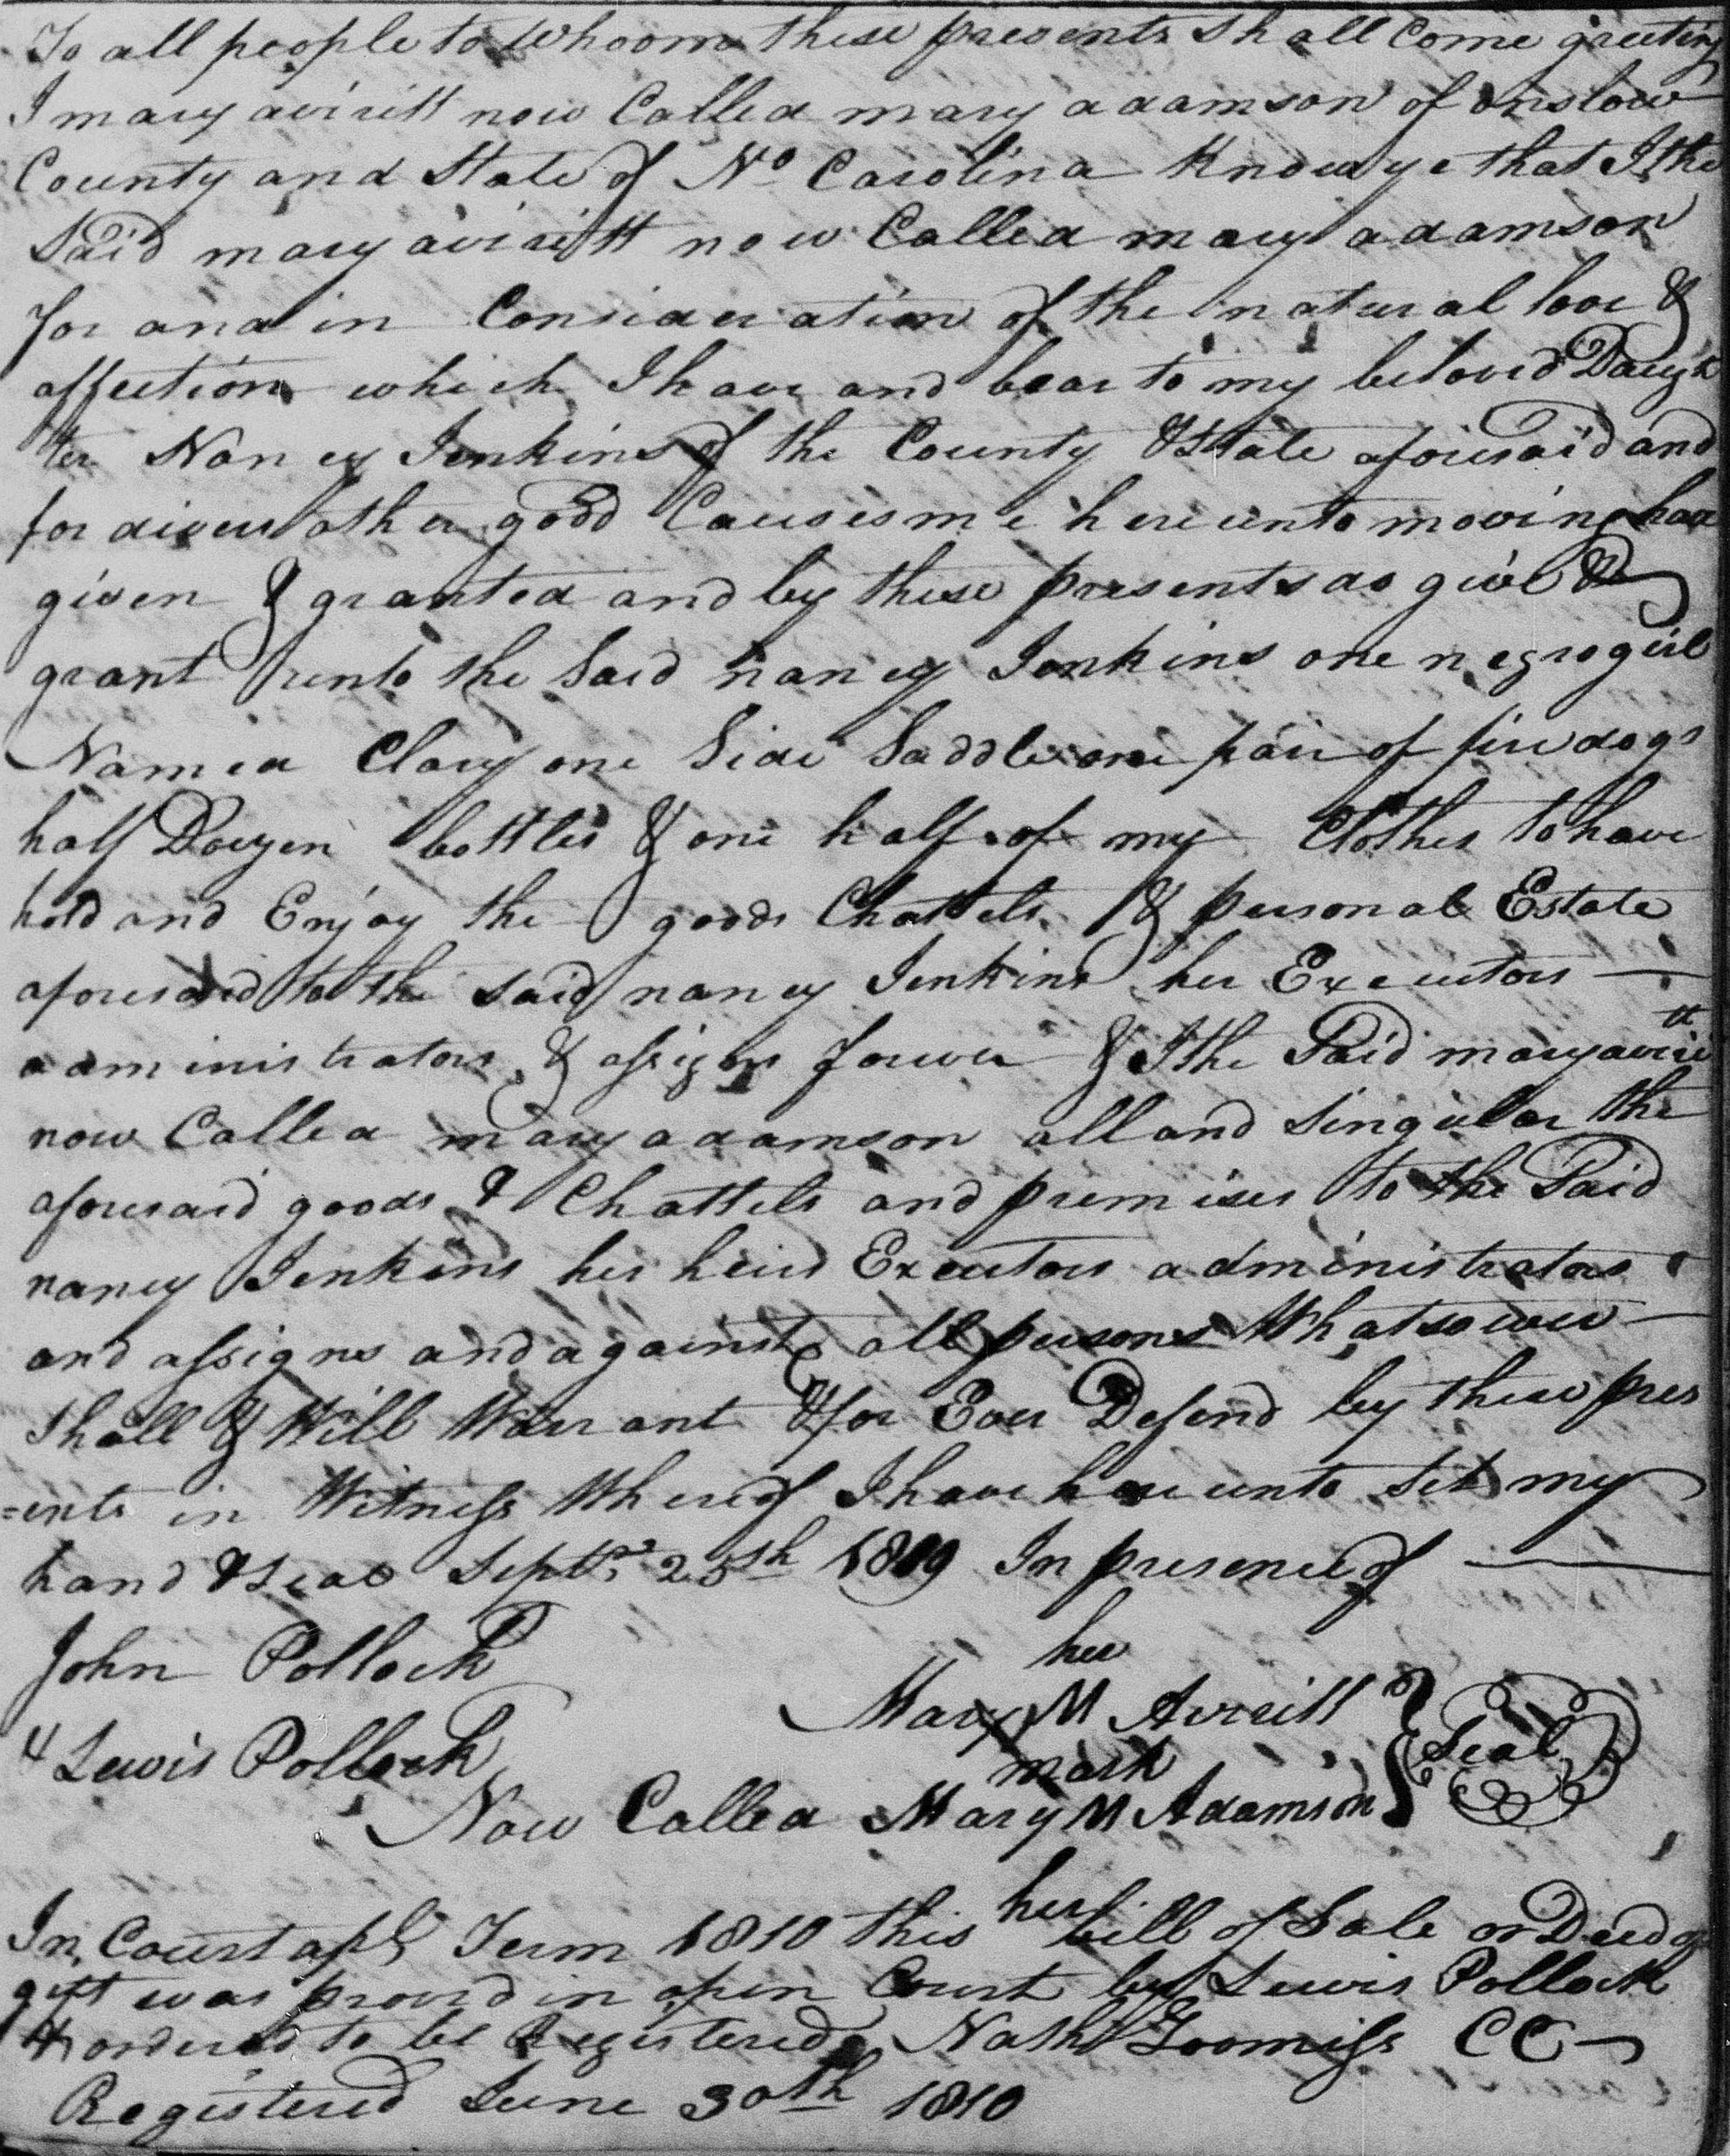 To all people to Whoom these presents Shall Come greeting
I mary avirett now Called mary adamson of onslow
County and State of No Carolina Know ye that I the
Said mary avirett now Called mary adamson
for and in Consideration of the natural love &
affection which I have and bear to my beloved Daugh
ter Nancy Jenkins of the County & State aforesaid and
for divers other good Causes me hereunto moving have
given & granted and by these presents do give &
grant unto the Said nancy Jenkins one negro girl
Named Clary one Side Saddle one pair of fire dogs
half Douzen bottles & one half of my Clothes to have
hold and Enjoy the goods Chattels & personal Estate
aforesaid to the said nancy Jenkins her Executors
administrators & assigns forever & I the Said mary averitt
now Called mary adamson all and Singular the
aforesaid goods & Chattels and premises to the Said
nancy Jenkins her heirs Executors administrators
and assigns and against all persons Whatsoever
Shall & Will Warrant & for Ever Defend by these pres
=ents in Witness Whereof I have hereunto Set my
hand & Seal Septr 25th 1809 In presence of
John Pollock
her
Mary M Aviritt
& Lewis Pollock
mark
Seal
Now Called Mary M Adamson
her
In Court apl Term 1810 this bill of Sale or Deed of
gift was proved in open Court by Lewis Pollock
& ordered to be Registered Nathl Loomiss CC
Registered June 30th 1810